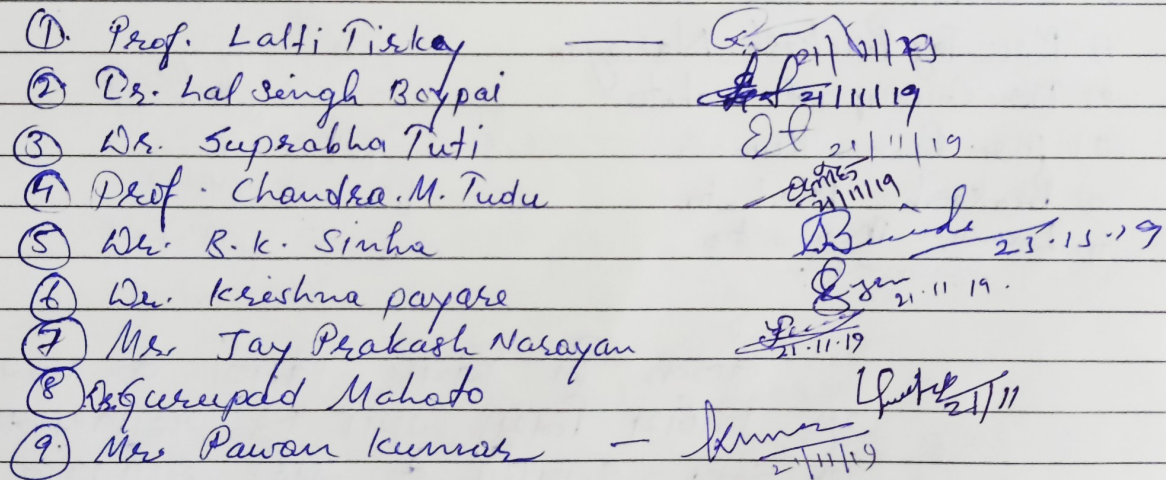 ①. Prof. Lalti Tirkey — 21/11/19
② Dr. Lal Singh Boypai 21/11/19
③ Dr. Suprabha Tuti 21/11/19
④ Prof. Chandra. M. Tudu 21/11/19
⑤ Dr. B. K. Sinha
⑥ Dr. Krishna payare 21.11.19.
⑦ Mr. Jay Prakash Narayan 21.11.19
⑧ Dr. Gurupad Mahato 21/11
⑨. Mr. Pawan Kumar — Kumar 21/11/19